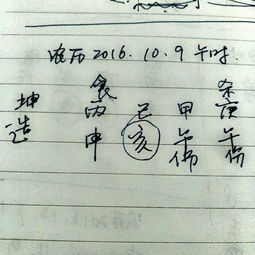 农历2016.10.9 午时.
坤造
食丙申
己亥
甲午伤
杀庚午伤